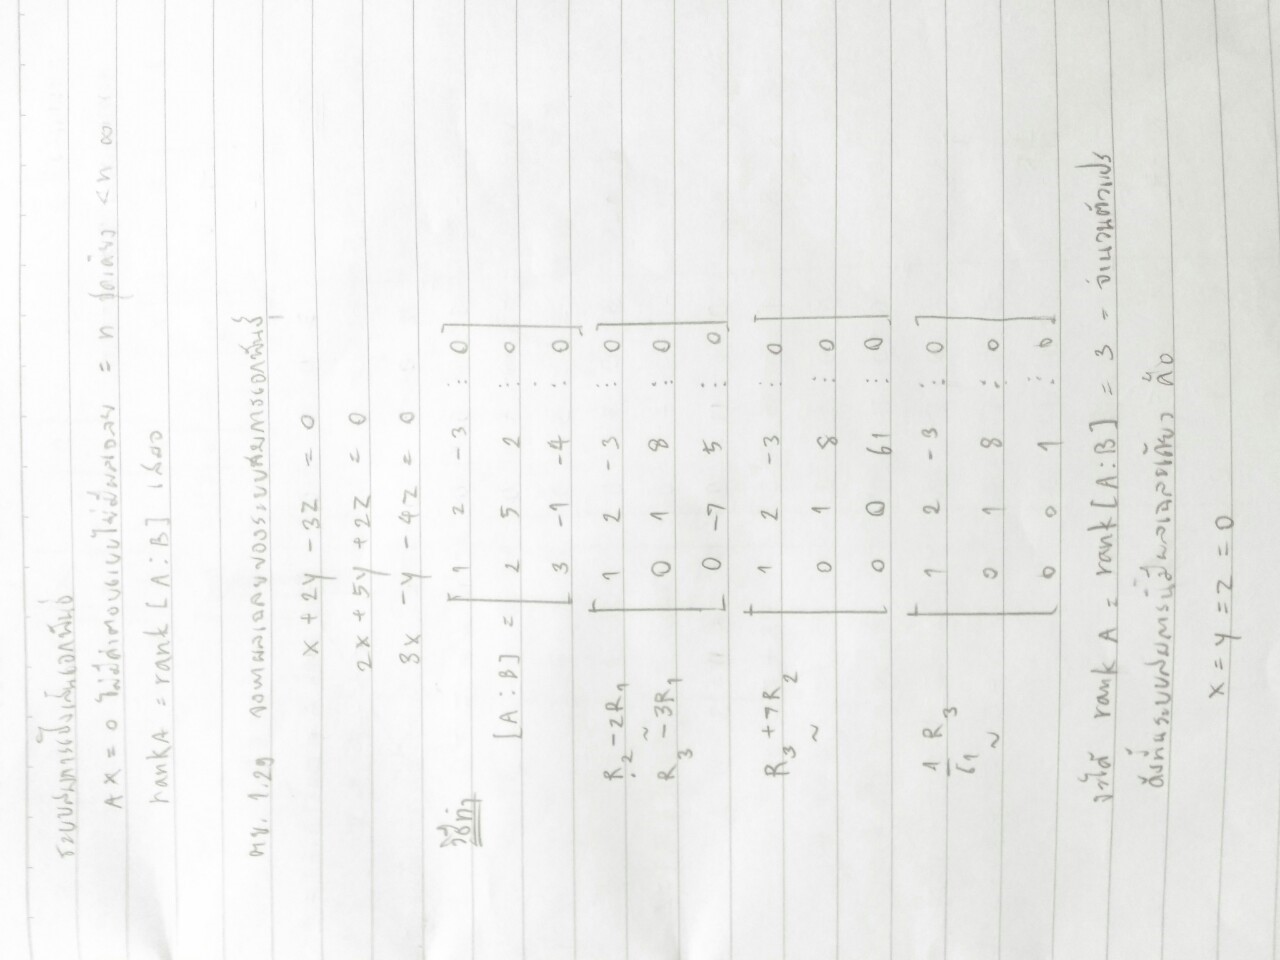 ระบบสมการเชิงเส้นเอกพันธ์
AX = 0 ไม่มีคำตอบแบบไม่มีผลเฉลย = n ชุดเดียว < n ∞
rank A = rank [A ⋮ B] เสมอ
ตย. 1.29 จงหาผลเฉลยของระบบสมการเอกพันธุ์
x + 2y - 3z = 0
2x + 5y + 2z = 0
3x - y - 4z = 0
วิธีทำ
1 2 -3 ⋮ 0
[A ⋮ B] = 2 5 2 ⋮ 0
3 -1 -4 ⋮ 0
R₂ - 2R₁ 1 2 -3 ⋮ 0
~
R₃ - 3R₁ 0 1 8 ⋮ 0
0 -7 5 ⋮ 0
R₃ + 7R₂ 1 2 -3 ⋮ 0
~ 0 1 8 ⋮ 0
0 0 61 ⋮ 0
1/61 R₃ 1 2 -3 ⋮ 0
~ 0 1 8 ⋮ 0
0 0 1 ⋮ 0
จะได้ rank A = rank [A ⋮ B] = 3 = จำนวนตัวแปร
ดังนั้นระบบสมการนี้มีผลเฉลยเดียว คือ
x = y = z = 0